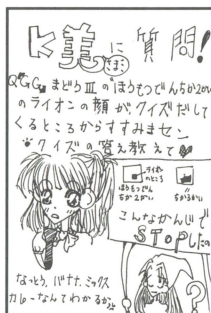 K美に質問!
さまに
Q GG まどう皿のほうもつでんちか2かい
のライオンの顔がクイズだして
くるところからすすみませン
クイズの答え教えて
ライオン
のところ
ほうもつでん
ちか2かい
ちかろうかい
こんなかんじで
STOPしたの
なっとう、バナナ、ミックス
カレーなんてわかるか
?